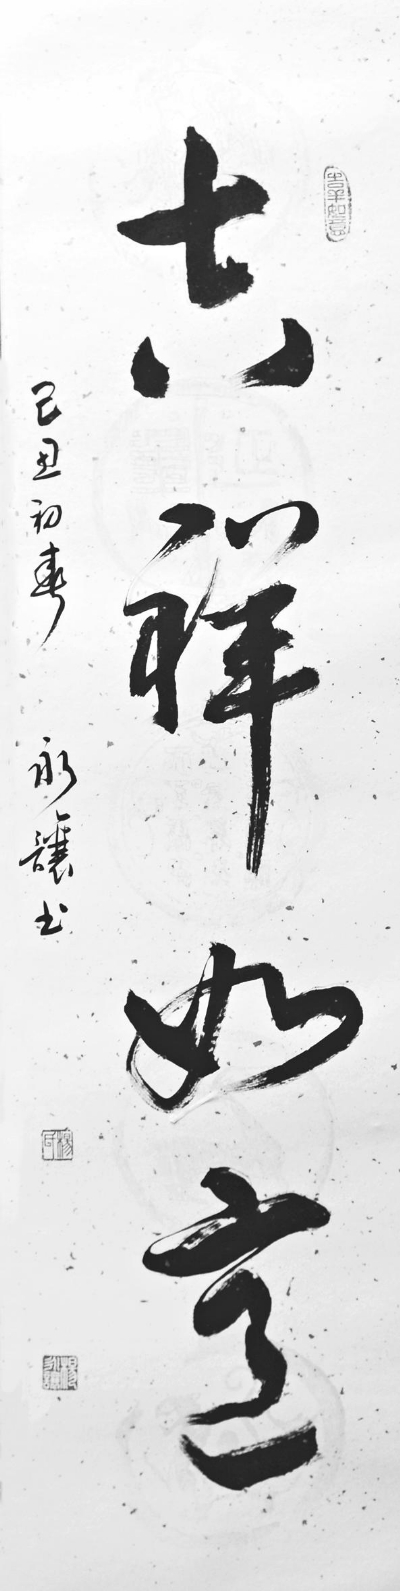 吉祥如意
己丑初春 永讓书